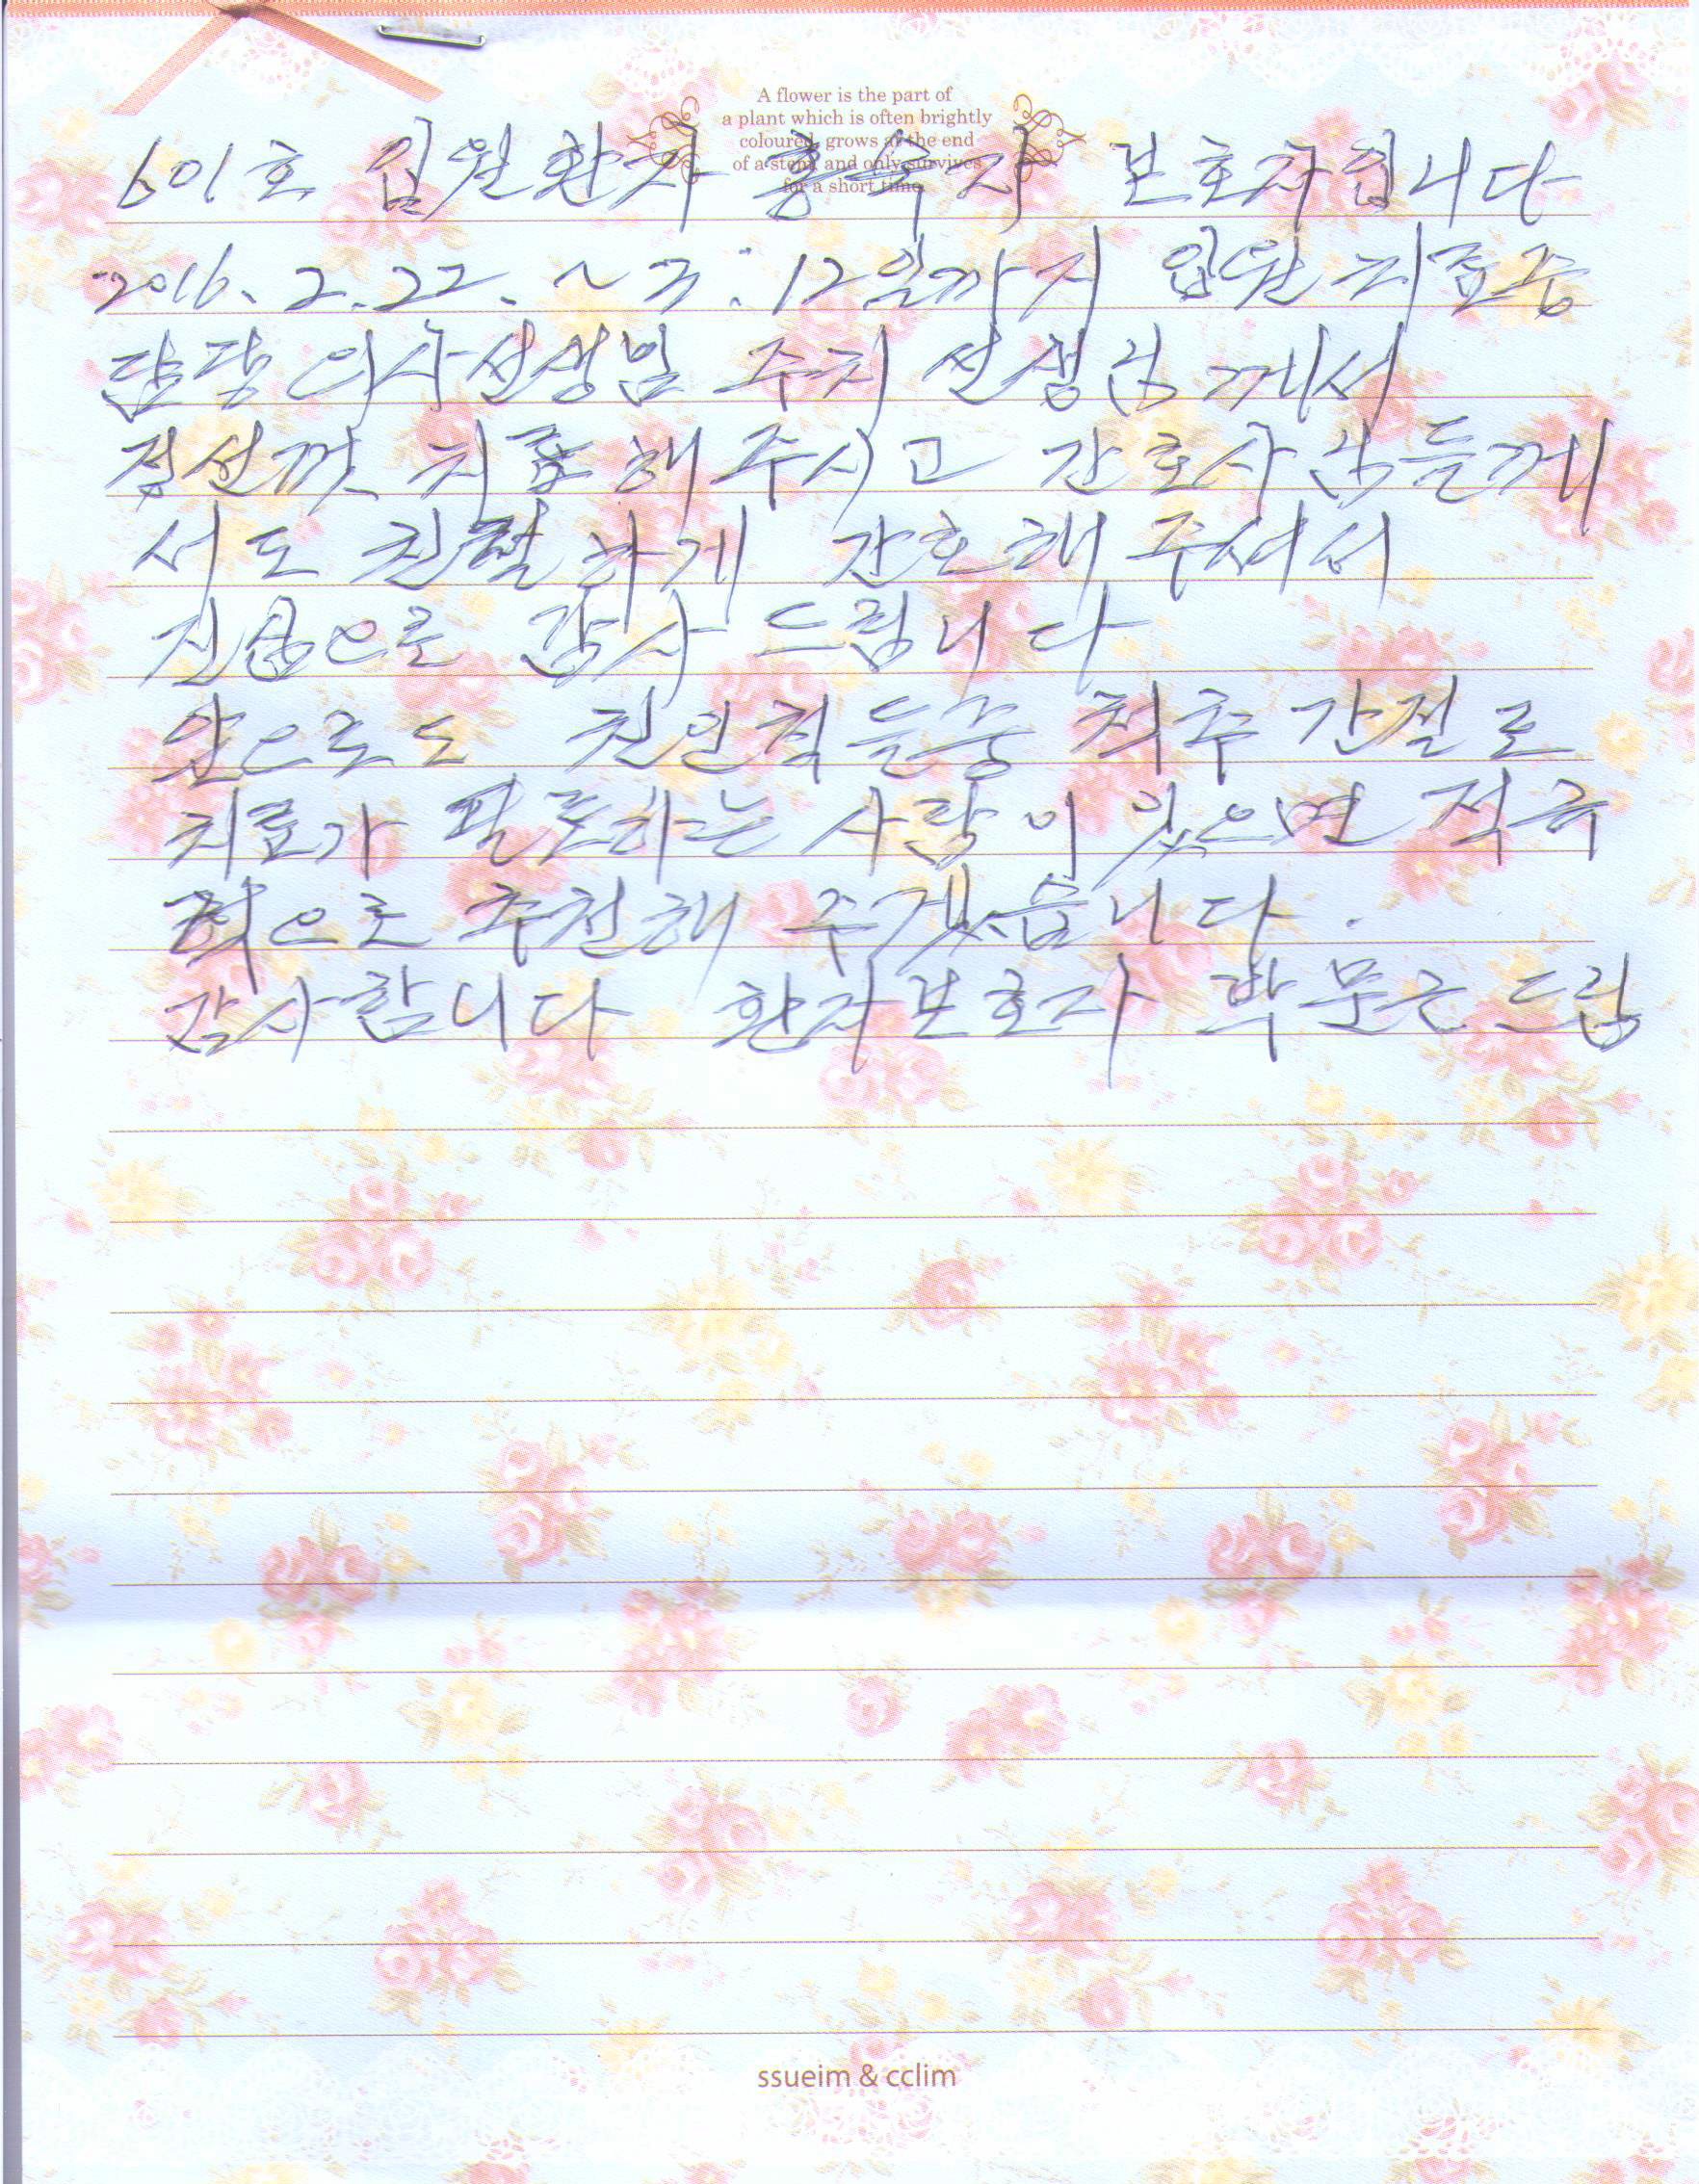 A flower is the part of
a plant which is often brightly
coloured, grows at the end
of a stem, and only survives
for a short time.
601호 입원환자 홍숙자 보호자입니다
2016. 2. 22. ~ 3. 12일까지 입원 치료중
담당 의사선생님 주치 선생님 께서
정성껏 치료해 주시고 간호사님들께
서도 친절하게 간호해 주셔서
진심으로 감사 드립니다
앞으로도 친인척들중 척추 간절로
치료가 필료하는 사람이 있으면 적극
적으로 추천해 주겠습니다.
감사합니다 환자보호자 박문근 드림
ssueim & cclim